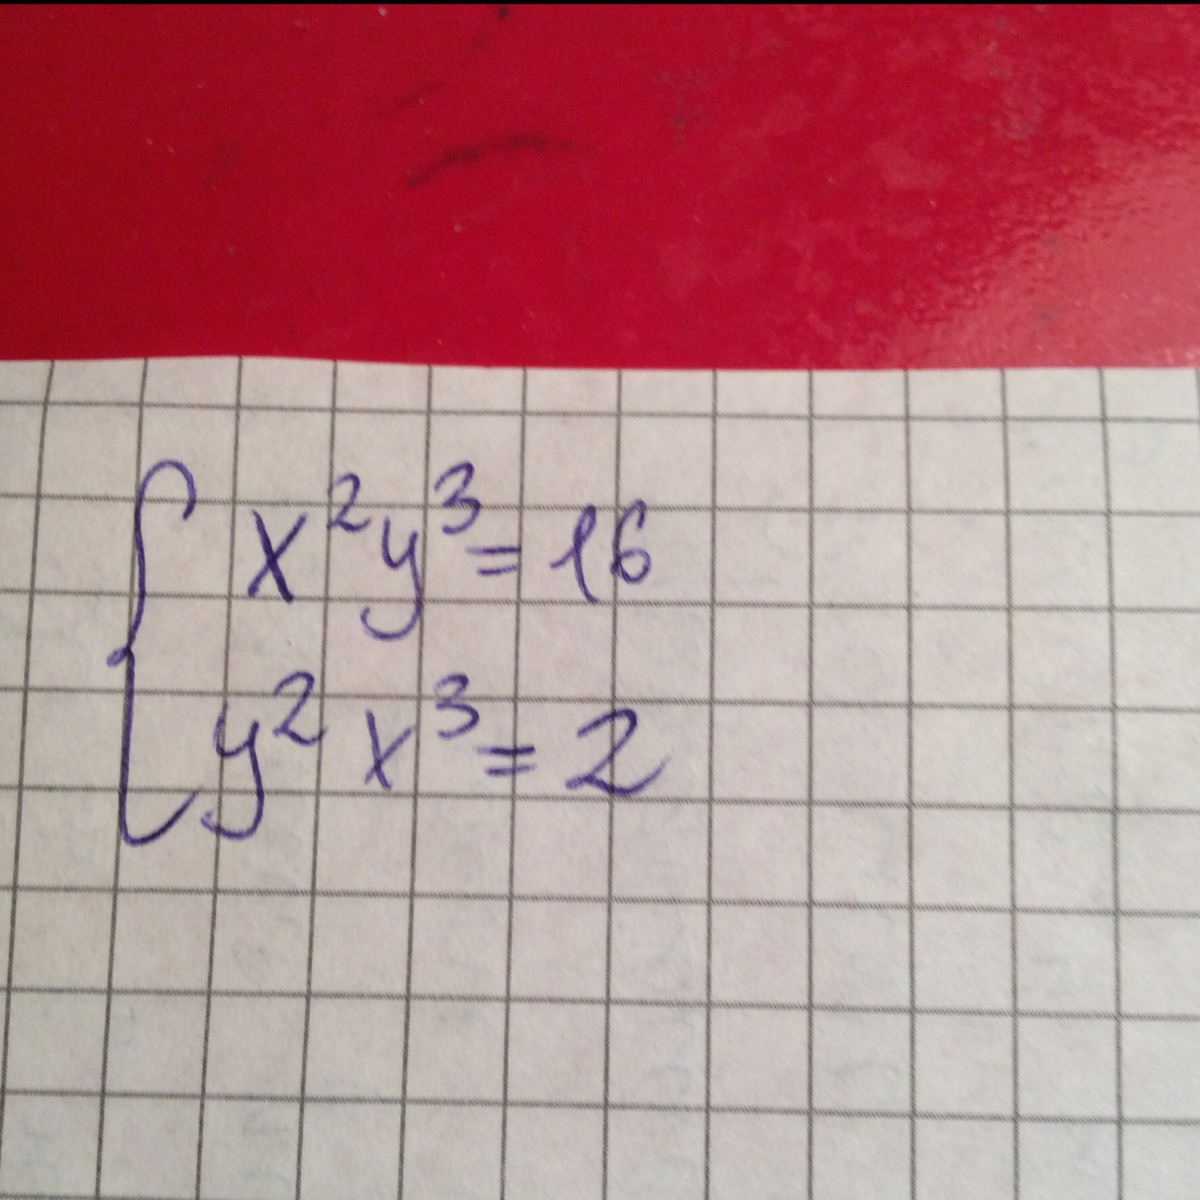 x²y³=16
y²x³=2